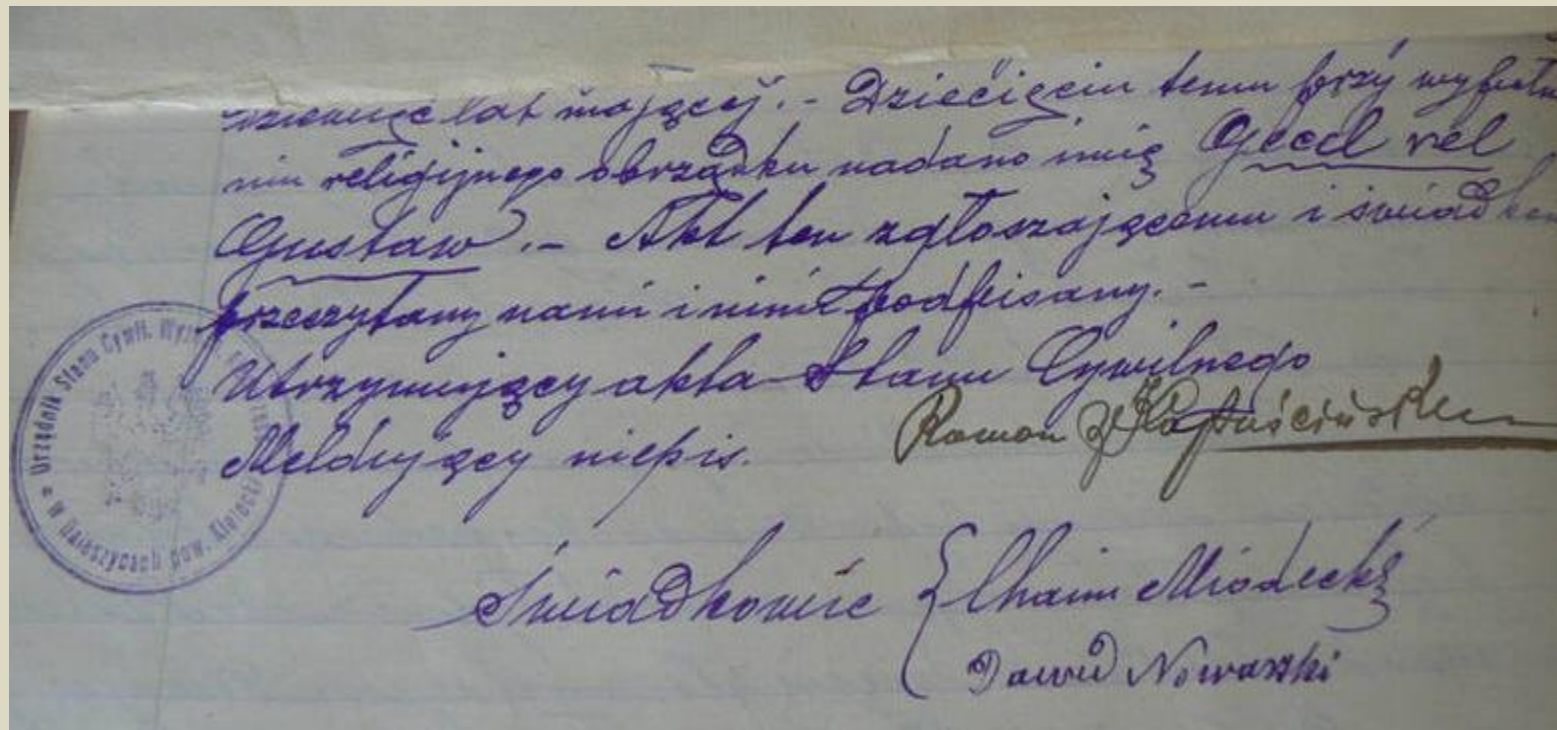 lat mającej. - Dziecięciu temu przy wypełnie
niu religijnego obrządku nadano imię Gecel vel
Gustaw. - Akt ten zgłaszającemu i świadkom
przeczytany nami i nimi podpisany. -
Utrzymujący akta Stanu Cywilnego
Meldujący niepis. Roman Kapuściński
Świadkowie { Chaim Miodecki
Dawid Nowarski
Urzędnik Stanu Cywil. w Daleszycach pow. Kielecki